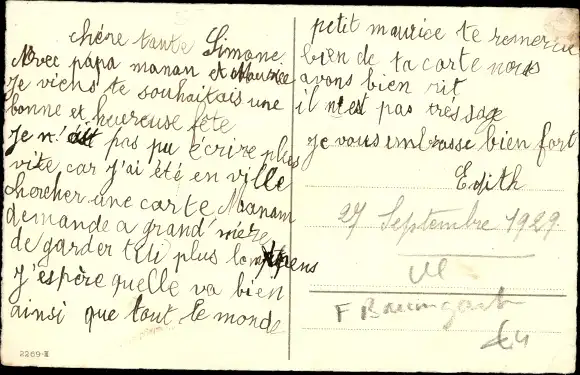 chére tante Simone
Avec papa manan et Maurice
je viens te souhaitais une
bonne et heureuse fête
je n'ait pas pu écrire plus
vite car j'ai été en ville
chercher une carte Maanam
demande a grand mère
de garder plus lomptens
j'espère quelle va bien
ainsi que tout le monde
2269-II
petit maurice te remercie
bien de ta carte nous
avons bien rit
il n'est pas trés sage
je vous embrasse bien fort
Edith
27 Septembre 1929.
F Baumgart